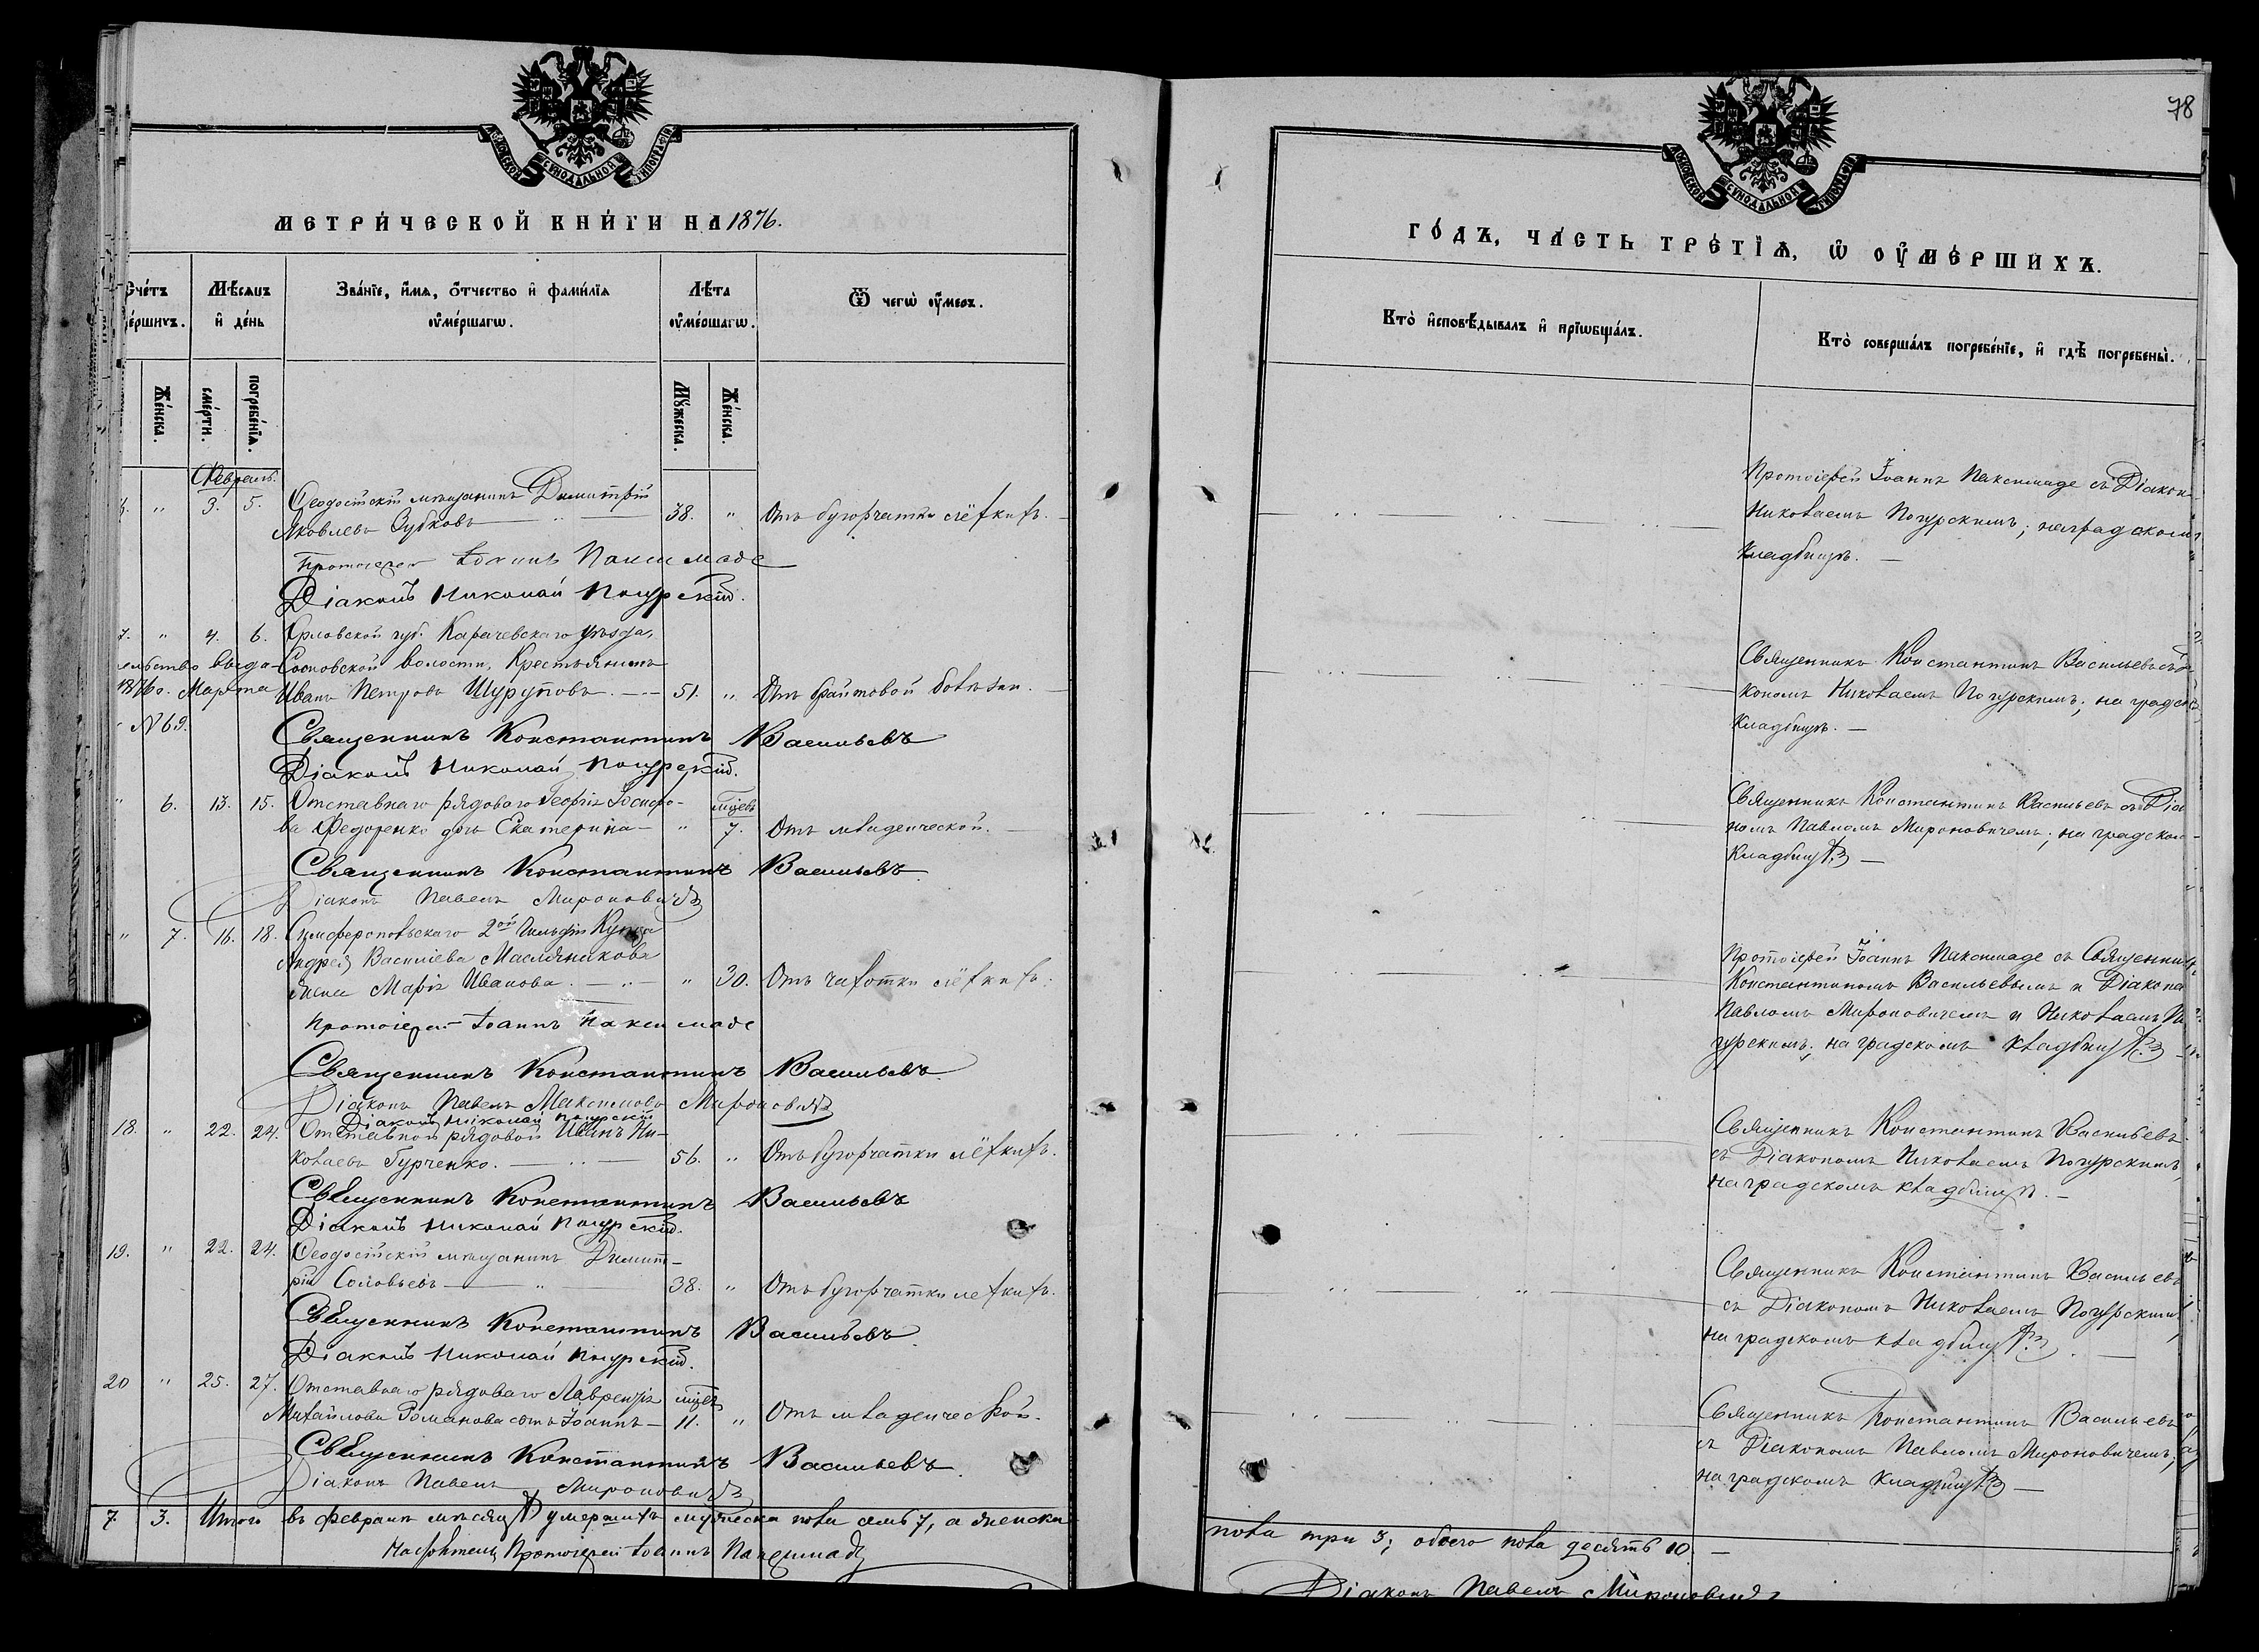 МОСКОВСКОЙ СѴНОДАЛЬНОЙ ТИПОГРАФІИ
МЕТРИ́ЧЕСКОЙ КНИ́ГИ НА 1876.
Сче́тъ
Мѣсяцъ
Зва́ніе, и́мя, о́тчество и фами́лія
Лѣта
Ѿ чегѡ̀ ᲂу҆́меръ.
ме́ршихъ.
и де́нь
ᲂу҆ме́ршагѡ.
ᲂу҆ме́ршагѡ.
Же́нска.
сме́рти.
погребе́нїѧ.
Му́жеска.
Же́нска.
Февраль.
" 3. 5. Ѳеодосійскій мѣщанинъ Димитрій
Яковлевъ Зубковъ — 38. " Отъ бугорчатки лёгкихъ.
Протоіерей Іоаннъ Паксимаде
Діаконъ Николай Погурскій.
7. " 4. 6. Орловской губ. Карачевскаго уѣзда,
Сосновской волости, Крестьянинъ
1876 г. Марта Иванъ Петровъ Шуруповъ. — 51. " Отъ брайтовой болѣзни.
N 69.
Священникъ Константинъ Васильевъ
Діаконъ Николай Погурскій.
" 6. 13. 15. Отставнаго рядоваго Георгія Іосифо-
ва Федоренко дочь Екатерина — " мѣсяцевъ 7. Отъ младенческой.
Священникъ Константинъ Васильевъ
Діаконъ Павелъ Мироновичъ
" 7. 16. 18. Симферопольскаго 2ой Гильдіи Купца
Андрея Васильева Масляникова
жена Марія Иванова. — " 30. Отъ чахотки лёгкихъ.
Протоіерей Іоаннъ Паксимаде
Священникъ Константинъ Васильевъ
Діаконъ Павелъ Максимовъ Мироновичъ
Діаконъ Николай Погурскій
18. " 22. 24. Отставной рядовой Иванъ Ни-
колаевъ Гурченко. — 56. " Отъ бугорчатки лёгкихъ.
Священникъ Константинъ Васильевъ
Діаконъ Николай Погурскій.
19. " 22. 24. Ѳеодосійскій мѣщанинъ Димит-
рій Соловьевъ — 38. " Отъ бугорчатки легкихъ.
Священникъ Константинъ Васильевъ
Діаконъ Николай Погурскій.
20 " 25. 27. Отставнаго рядоваго Лаврентія
Михайлова Романова сынъ Іоаннъ — мѣсяцевъ 11. " Отъ младенческой.
Священникъ Константинъ Васильевъ
Діаконъ Павелъ Мироновичъ
7. 3. Итого въ февралѣ мѣсяцѣ умершихъ мужеска пола семь 7, а женска
Настоятель Протоіерей Іоаннъ Паксимаде
78
МОСКОВСКОЙ СѴНОДАЛЬНОЙ ТИПОГРАФІИ
ГО́ДЪ, ЧА́СТЬ ТРЕ́ТЇѦ, Ѡ ᲂУ҆МЕ́РШИХЪ.
Кто̀ и҆сповѣ́дывалъ и҆ прїѡбща́лъ.
Кто̀ соверша́лъ погребе́нїе, и҆ гдѣ̀ погребены̀.
Протоіерей Іоаннъ Паксимаде съ Діакон
Николаемъ Погурскимъ; на градскомъ
кладбищѣ. —
Священникъ Константинъ Васильевъ съ Діа
кономъ Николаемъ Погурскимъ; на градск
кладбищѣ. —
Священникъ Константинъ Васильевъ съ Діа
кономъ Павломъ Мироновичемъ; на градском
кладбищѣ —
Протоіерей Іоаннъ Паксимаде съ Священник
Константиномъ Васильевымъ и Діакона
Павломъ Мироновичемъ и Николаемъ По
гурскимъ; на градскомъ кладбищѣ —
Священникъ Константинъ Васильевъ
съ Діакономъ Николаемъ Погурскимъ,
на градскомъ кладбищѣ. —
Священникъ Константинъ Васильевъ
съ Діакономъ Николаемъ Погурскимъ,
на градскомъ кладбищѣ. —
Священникъ Константинъ Васильевъ
съ Діакономъ Павломъ Мироновичемъ;
на градскомъ кладбищѣ —
пола три 3; обоего пола десять 10. —
Діаконъ Павелъ Мироновичъ